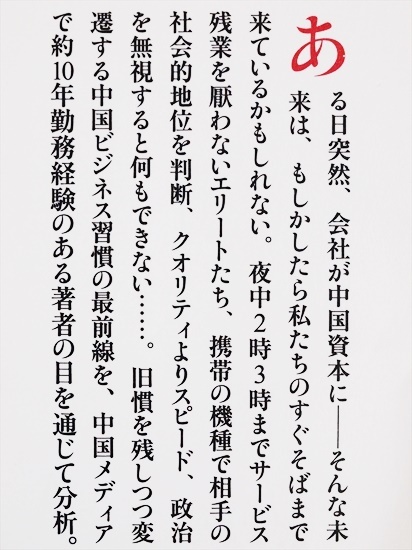 ある日突然、会社が中国資本に――そんな未
来は、もしかしたら私たちのすぐそばまで
来ているかもしれない。夜中2時3時までサービス
残業を厭わないエリートたち、携帯の機種で相手の
社会的地位を判断、クオリティよりスピード、政治
を無視すると何もできない……。旧慣を残しつつ変
遷する中国ビジネス習慣の最前線を、中国メディア
で約10年勤務経験のある著者の目を通じて分析。